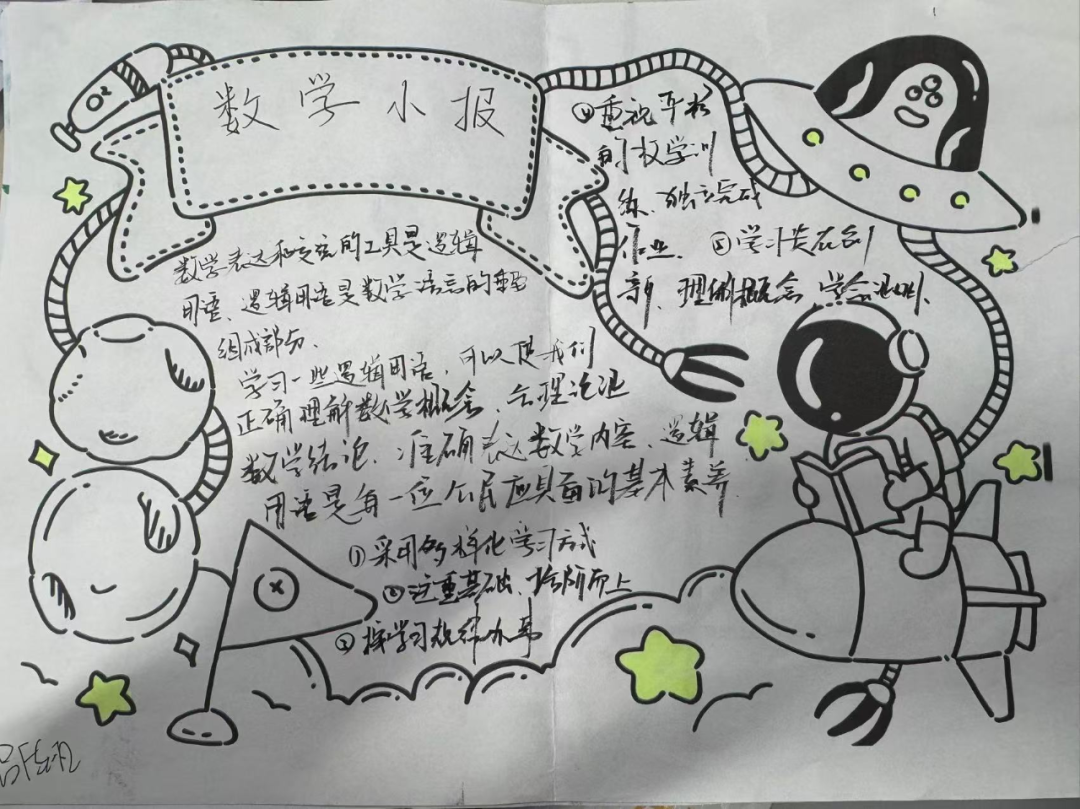 数学小报
数学表达和交流的工具是逻辑
用语、逻辑用语是数学语言的重要
组成部分、
学习一些逻辑用语，可以使我们
正确理解数学概念、合理论证
数学结论、准确表达数学内容、逻辑
用语是每一位公民应具备的基本素养
①采用多样化学习方式
②注重基础、拾阶而上
③按学习规律办事
④重视平
的数学训
练、独立完成
作业、⑤学习贵在创
新、理解概念、学会
吕